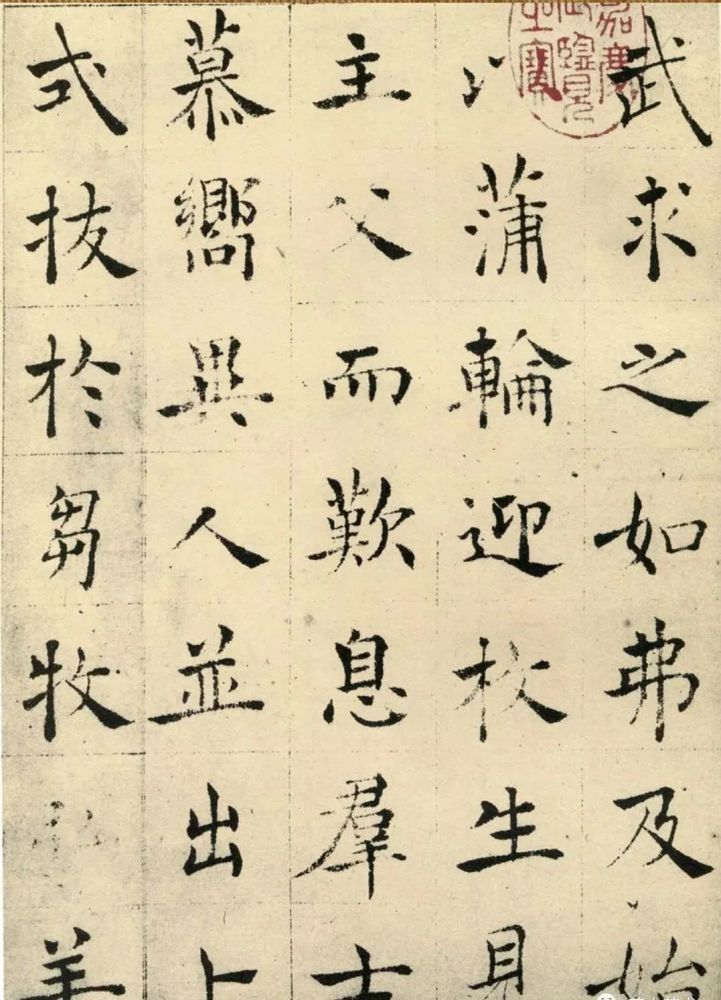 武求之如弗及始
以蒲輪迎枚生見
主父而歎息羣士
慕嚮異人並出卜
式拔於芻牧弘羊
嘉慶御覽之寶